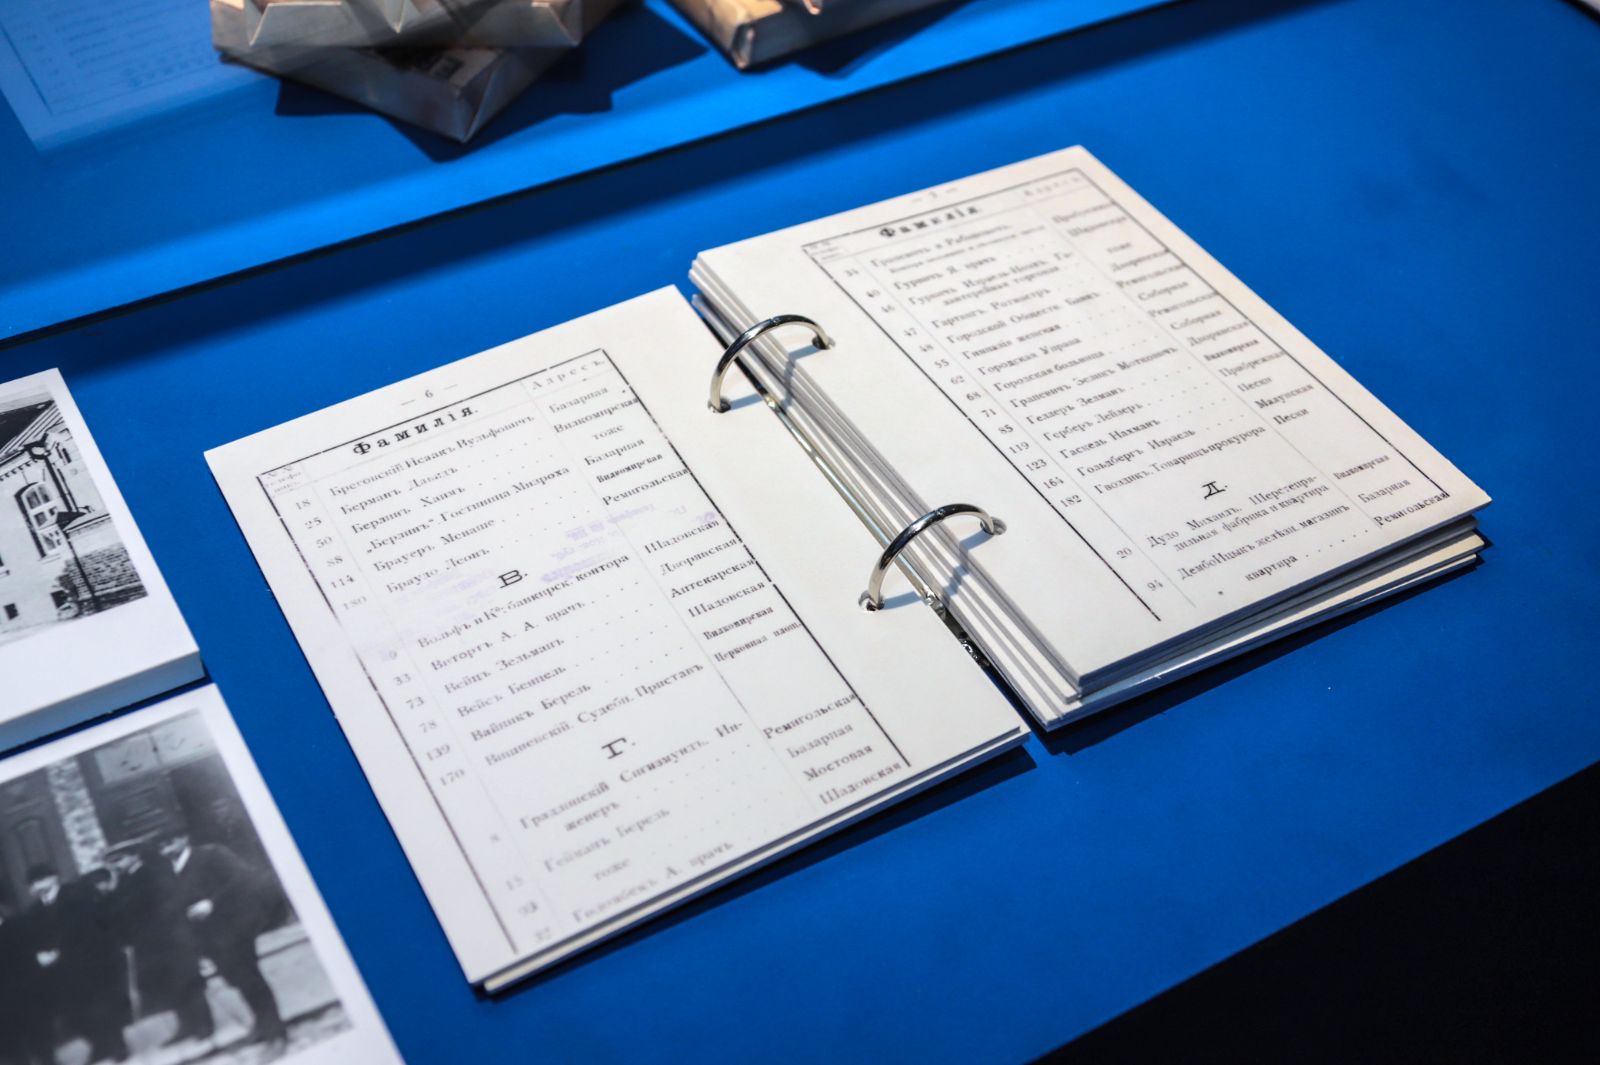 — 6 —
Фамилія. Адресъ.
18 Бреговскій Исаакъ Вульфовичъ Базарная
25 Берманъ Давидъ . . . Вилкомирская
50 Берлинъ Хаимъ . . . тоже
88 „Берлинъ“ Гостиница Мидроха Базарная
114 Брауеръ Менаше . . . Вилкомирская
180 Брауде Леонъ . . . Ремигольская
В.
Вольфъ и Кº банкирск. контора Шадовская
33 Веторъ А. А. врачъ . . . Дворянская
73 Вейцъ Зельманъ . . . Аптекарская
78 Вейсъ Бенцель . . . Шадовская
139 Вайникъ Берель . . . Вилкомирская
170 Вишневскій Судебн. Приставъ Церковная площ.
Г.
8 Сигизмундъ. Ин-
женеръ . . . Ремигольская
15 Гейманъ Берель . . . Базарная
93 тоже . . . Мостовая
32 А. врачъ . . . Шадовская
— 7 —
Фамилія Адресъ
34 и Рабиновичъ
40 Гуревичъ Я. врачъ Шадовская
46 Гуревичъ Израиль-Іоselь. Га-
лантерейная торговля тоже
47 Гартингъ Ротмистръ Дворянская
48 Городской Обществ Банкъ Ремигольская
55 Гимназія женская Соборная
62 Городская Управа Ремигольская
68 Городская больница Соборная
71 Граневичъ Зеликъ Мотковичъ Дворянская
85 Геллеръ Зелманъ Вилкомирская
119 Герберъ Лейзеръ Прибрежная
123 Гаспель Нахманъ Пески
164 Гольдбергъ Израель
182 Гвоздикъ. Товарищъ прокурора Пески
Д.
20 Дудо Михаилъ. Шерстепря-
дильная фабрика и квартира Вилкомирская
94 Дембо Ицыкъ желѣзн. магазинъ Базарная
квартира . . . Ремигольская